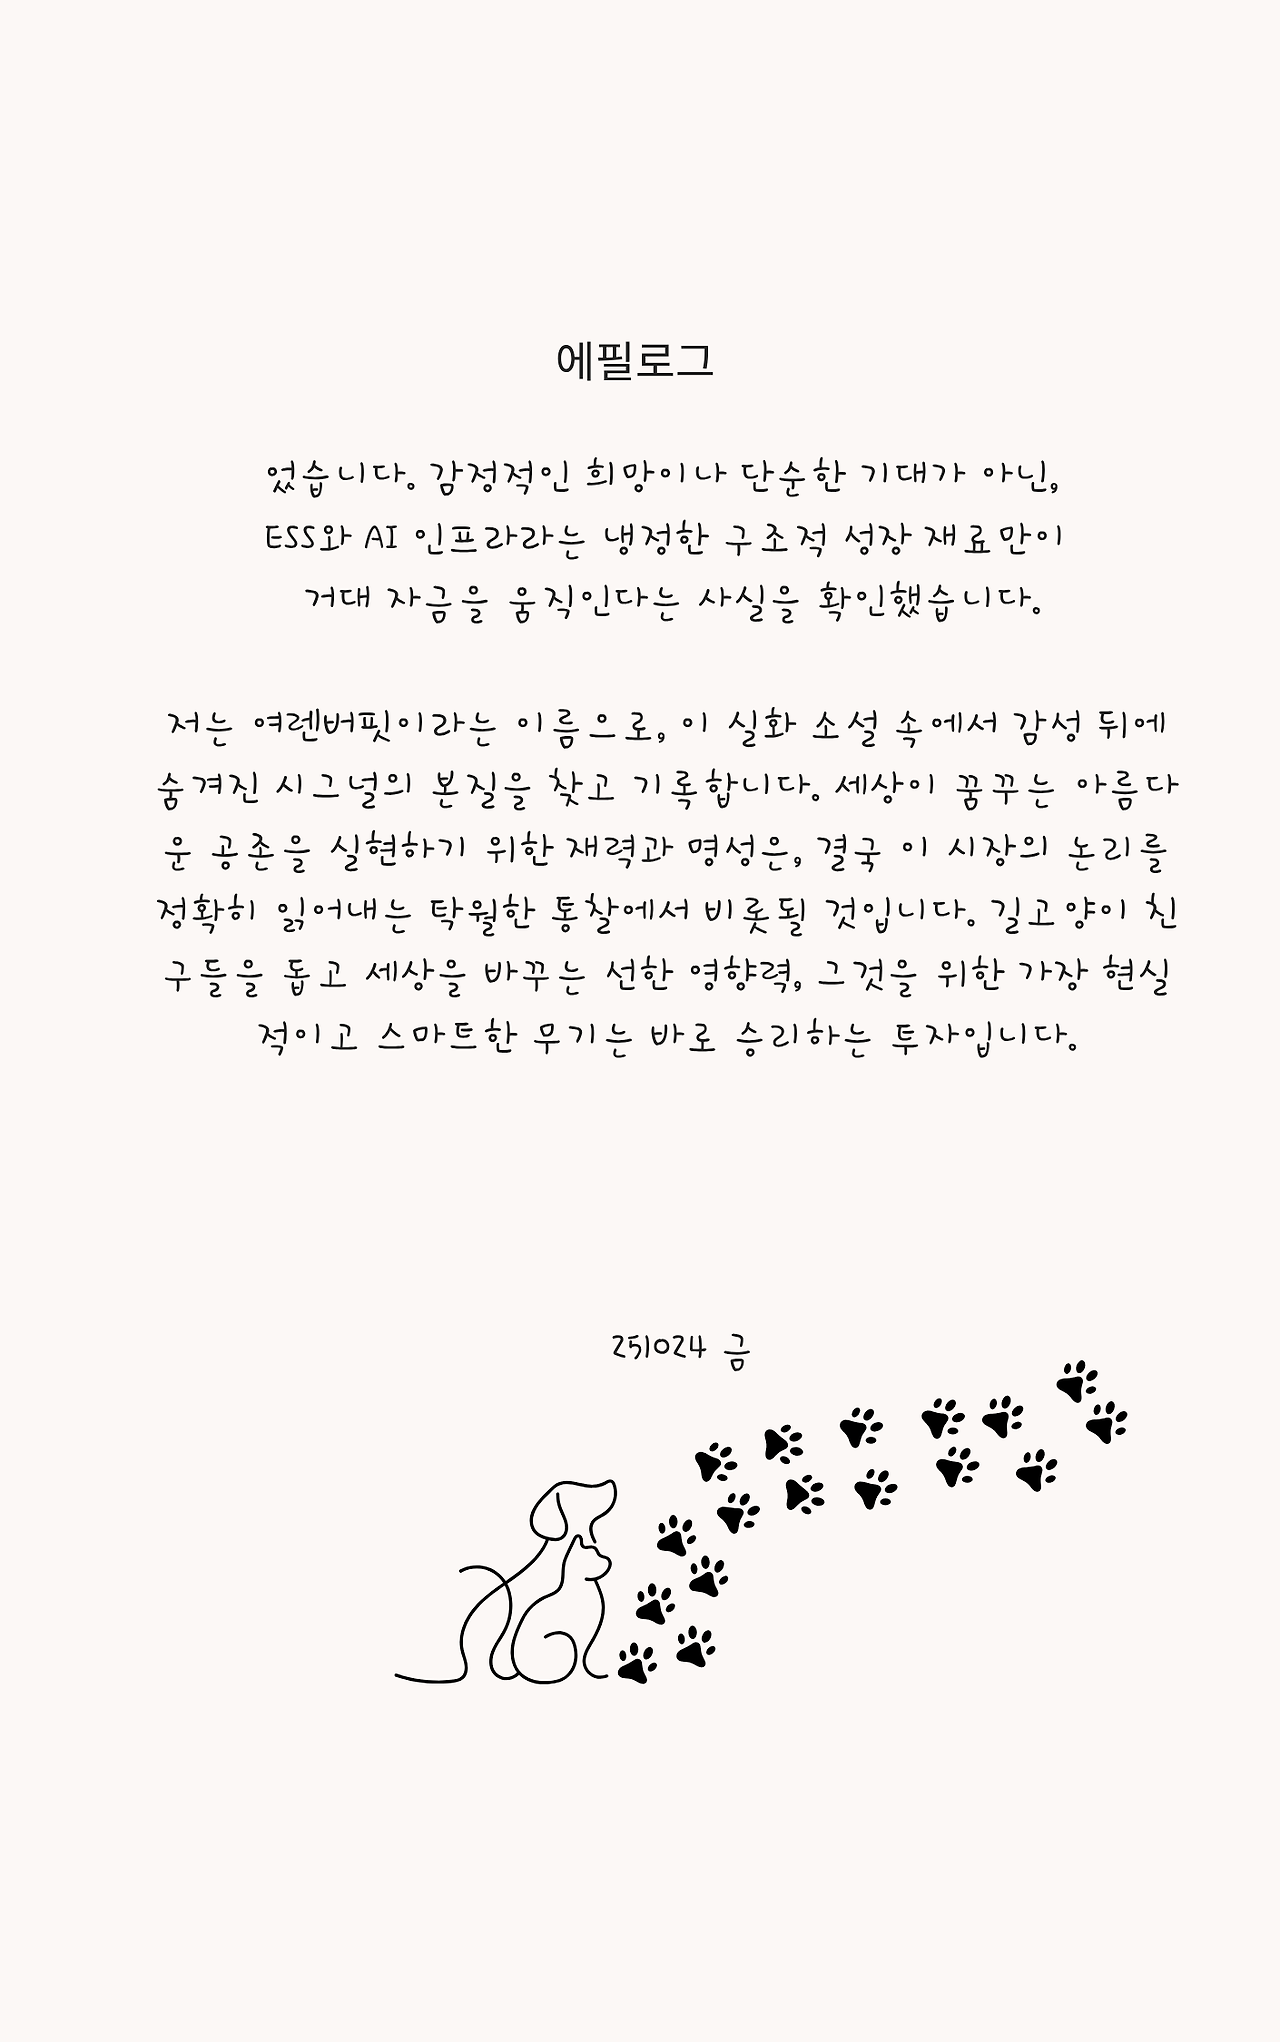 에필로그
었습니다. 감정적인 희망이나 단순한 기대가 아닌,
ESS와 AI 인프라라는 냉정한 구조적 성장 재료만이
거대 자금을 움직인다는 사실을 확인했습니다.
저는 여렌버핏이라는 이름으로, 이 실화 소설 속에서 감성 뒤에
숨겨진 시그널의 본질을 찾고 기록합니다. 세상이 꿈꾸는 아름다
운 공존을 실현하기 위한 재력과 명성은, 결국 이 시장의 논리를
정확히 읽어내는 탁월한 통찰에서 비롯될 것입니다. 길고양이 친
구들을 돕고 세상을 바꾸는 선한 영향력, 그것을 위한 가장 현실
적이고 스마트한 무기는 바로 승리하는 투자입니다.
251024 금